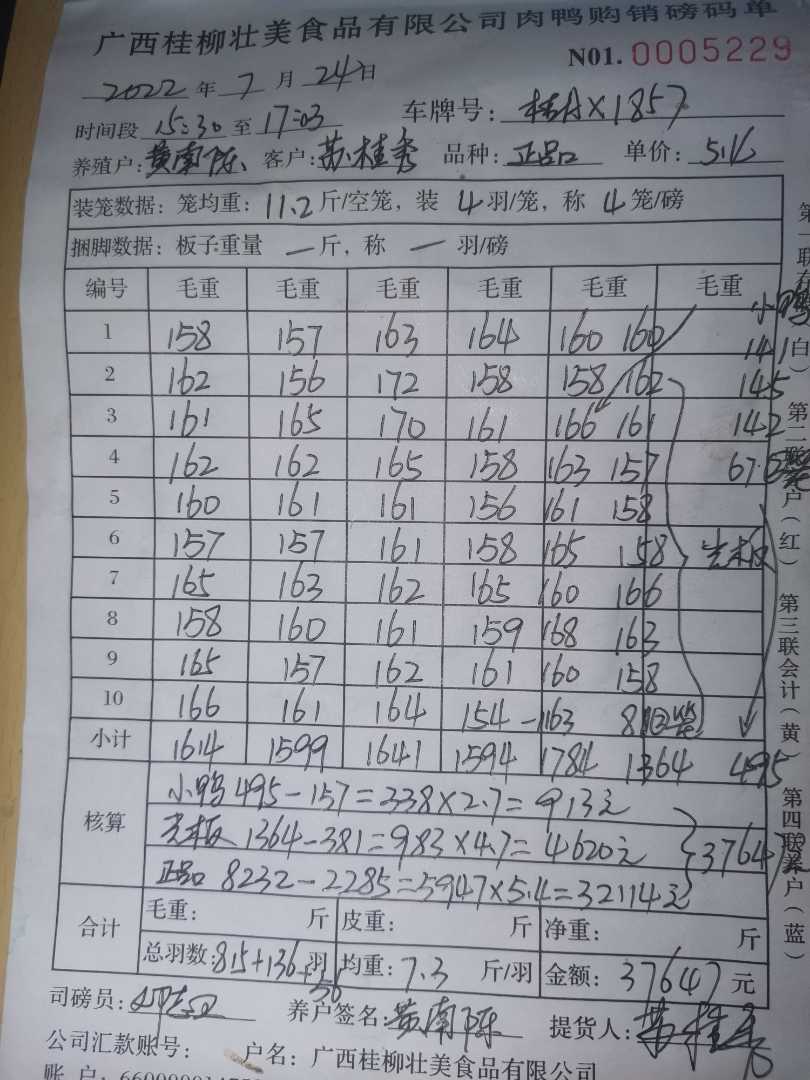 广西桂柳壮美食品有限公司肉鸭购销磅码单
N01. 0005229
2022 年 7 月 24 日
时间段 15:30 至 17:03 车牌号: X1857
养殖户: 黄南陈 客户: 苏桂秀 品种: 正品 单价: 5.4
装笼数据: 笼均重: 11.2 斤/空笼, 装 4 羽/笼, 称 4 笼/磅
捆脚数据: 板子重量 — 斤, 称 — 羽/磅
编号 毛重 毛重 毛重 毛重 毛重 毛重
小鸭
1 158 157 163 164 160 160 141
2 162 156 172 158 158 162 145
3 161 165 170 161 166 161 142
4 162 162 165 158 163 157 67
5 160 161 161 156 161 158
6 157 157 161 158 165 158 光板
7 165 163 162 165 160 166
8 158 160 161 159 168 163
9 165 157 162 161 160 158
10 166 161 164 154 - 163 81
小计 1614 1599 1641 1594 1784 1364 495
核算
小鸭 495-157=338×2.7=913元
光板 1364-381=983×4.7=4620元
正品 8232-2285=5947×5.4=32114元
37647
合计 毛重: 斤 皮重: 斤 净重: 斤
总羽数: 815+136+56 羽 均重: 7.3 斤/羽 金额: 37647 元
司磅员: 养户签名: 黄南陈 提货人: 苏桂秀
公司汇款账号: 户名: 广西桂柳壮美食品有限公司
白) 第二联客户(红) 第三联会计(黄) 第四联养户(蓝)